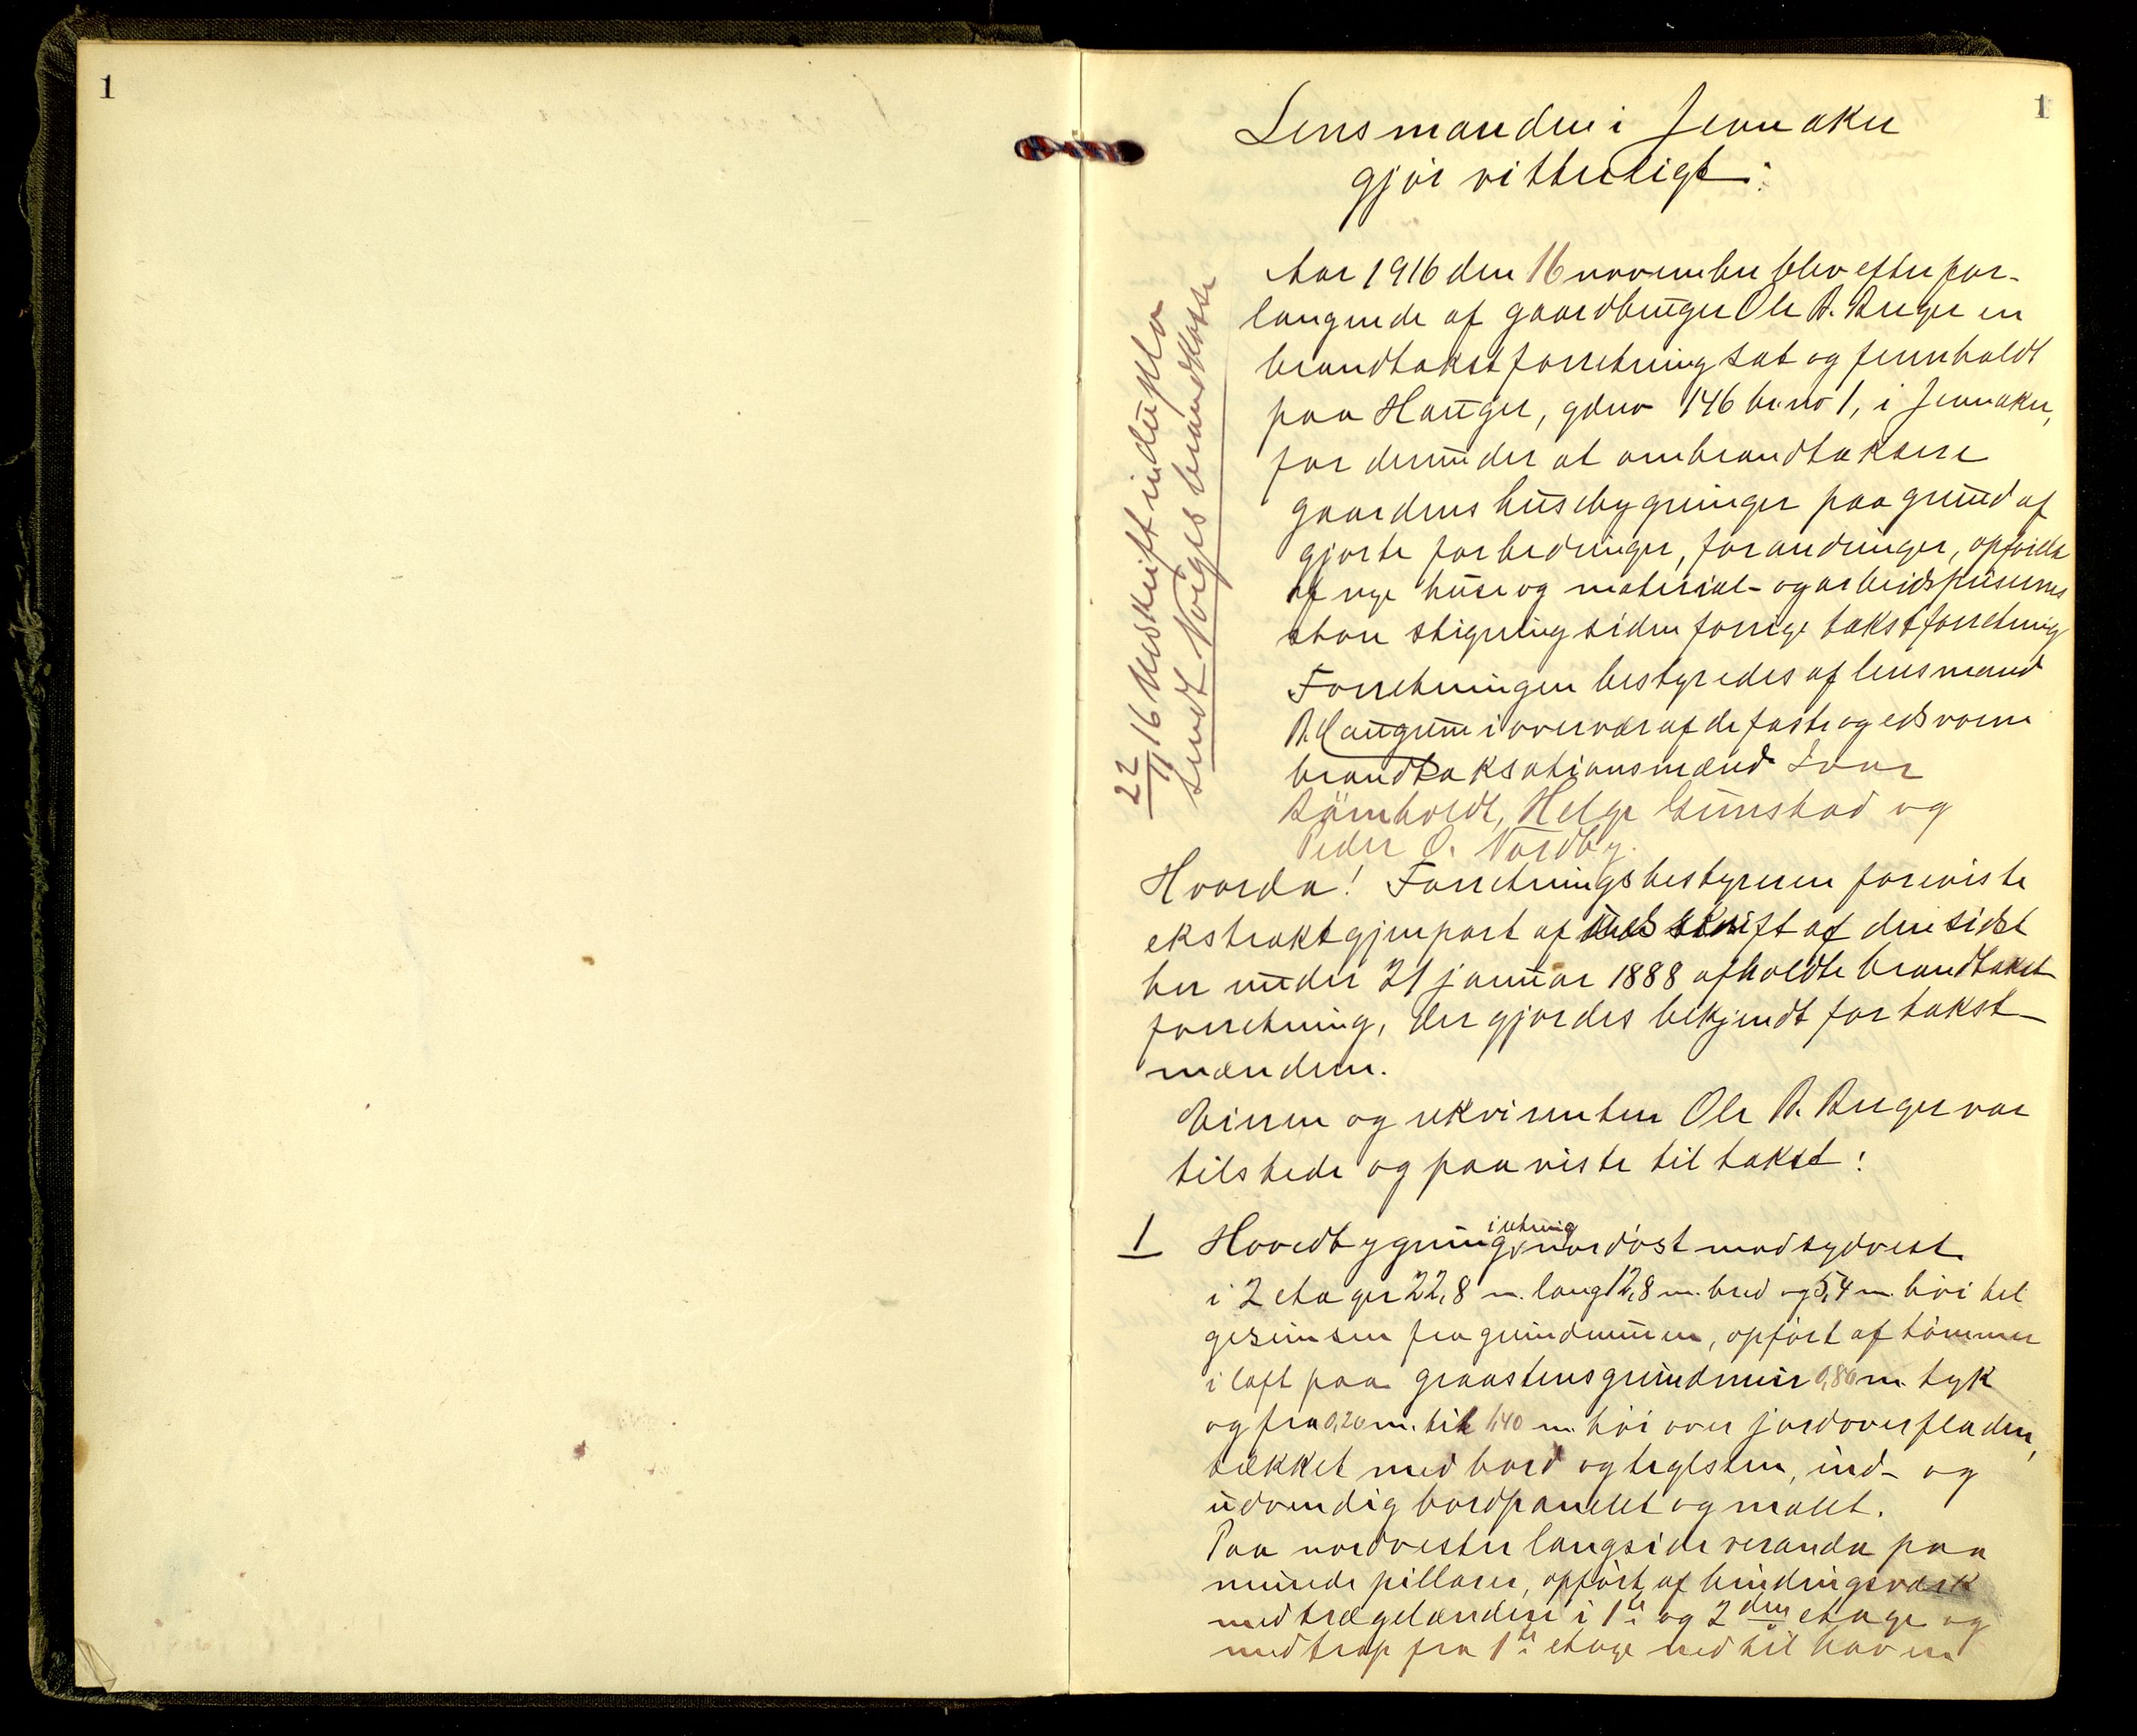 1
1
Lensmanden i Jevnaker
gjør vitterligt:
Aar 1916 den 16 november blev efter for-
langende af gaardbruger Ole B. Berger en
brandtakstforretning sat og fremholdt
paa Hauger, gdno 146 br.no 1, i Jevnaker,
for derunder at ombrandtaksere
gaardens husebygninger paa grund af
gjorte forbedringer, forandringer, opførelse
af nye huse og material- og arbeidsprisernes
store stigning siden forrige takstforretning
Forretningen bestyredes af lensmand
B. Haugum i overvær af de faste og edsvorne
brandtaksationsmænd Ivar
Rømholdt, Helge Gunstad og
Peder O. Nordby.
22/11 16 Udskrift in duplo
sendt Norges brandkasse
Hvorda! Forretningsbestyreren foreviste
ekstraktgjenpart af udskrift af den sidst
her under 21 januar 1888 afholdte brandtakst
forretning, der gjordes bekjendt for takst-
mændene.
Eieren og rekvirenten Ole B. Berger var
tilstede og paaviste til takst:
1 Hovedbygning, i retning nordøst mod sydvest
i 2 etager 22,8 m. lang 12,8 m. bred og 5,4 m. høi til
gesimsen fra grundmuren, opført af tømmer
i laft paa graastensgrundmur 0,80 m. tyk
og fra 0,20 m. til 1,40 m. høi over jordoverfladen,
tækket med bord og teglsten, ind- og
udvendig bordpanelet og malet.
Paa nordvestre langside veranda paa
murede pillarer, opført af bindingsværk
med trægelændere i 1ste og 2den etage og
med trap fra 1ste etage ned til haven